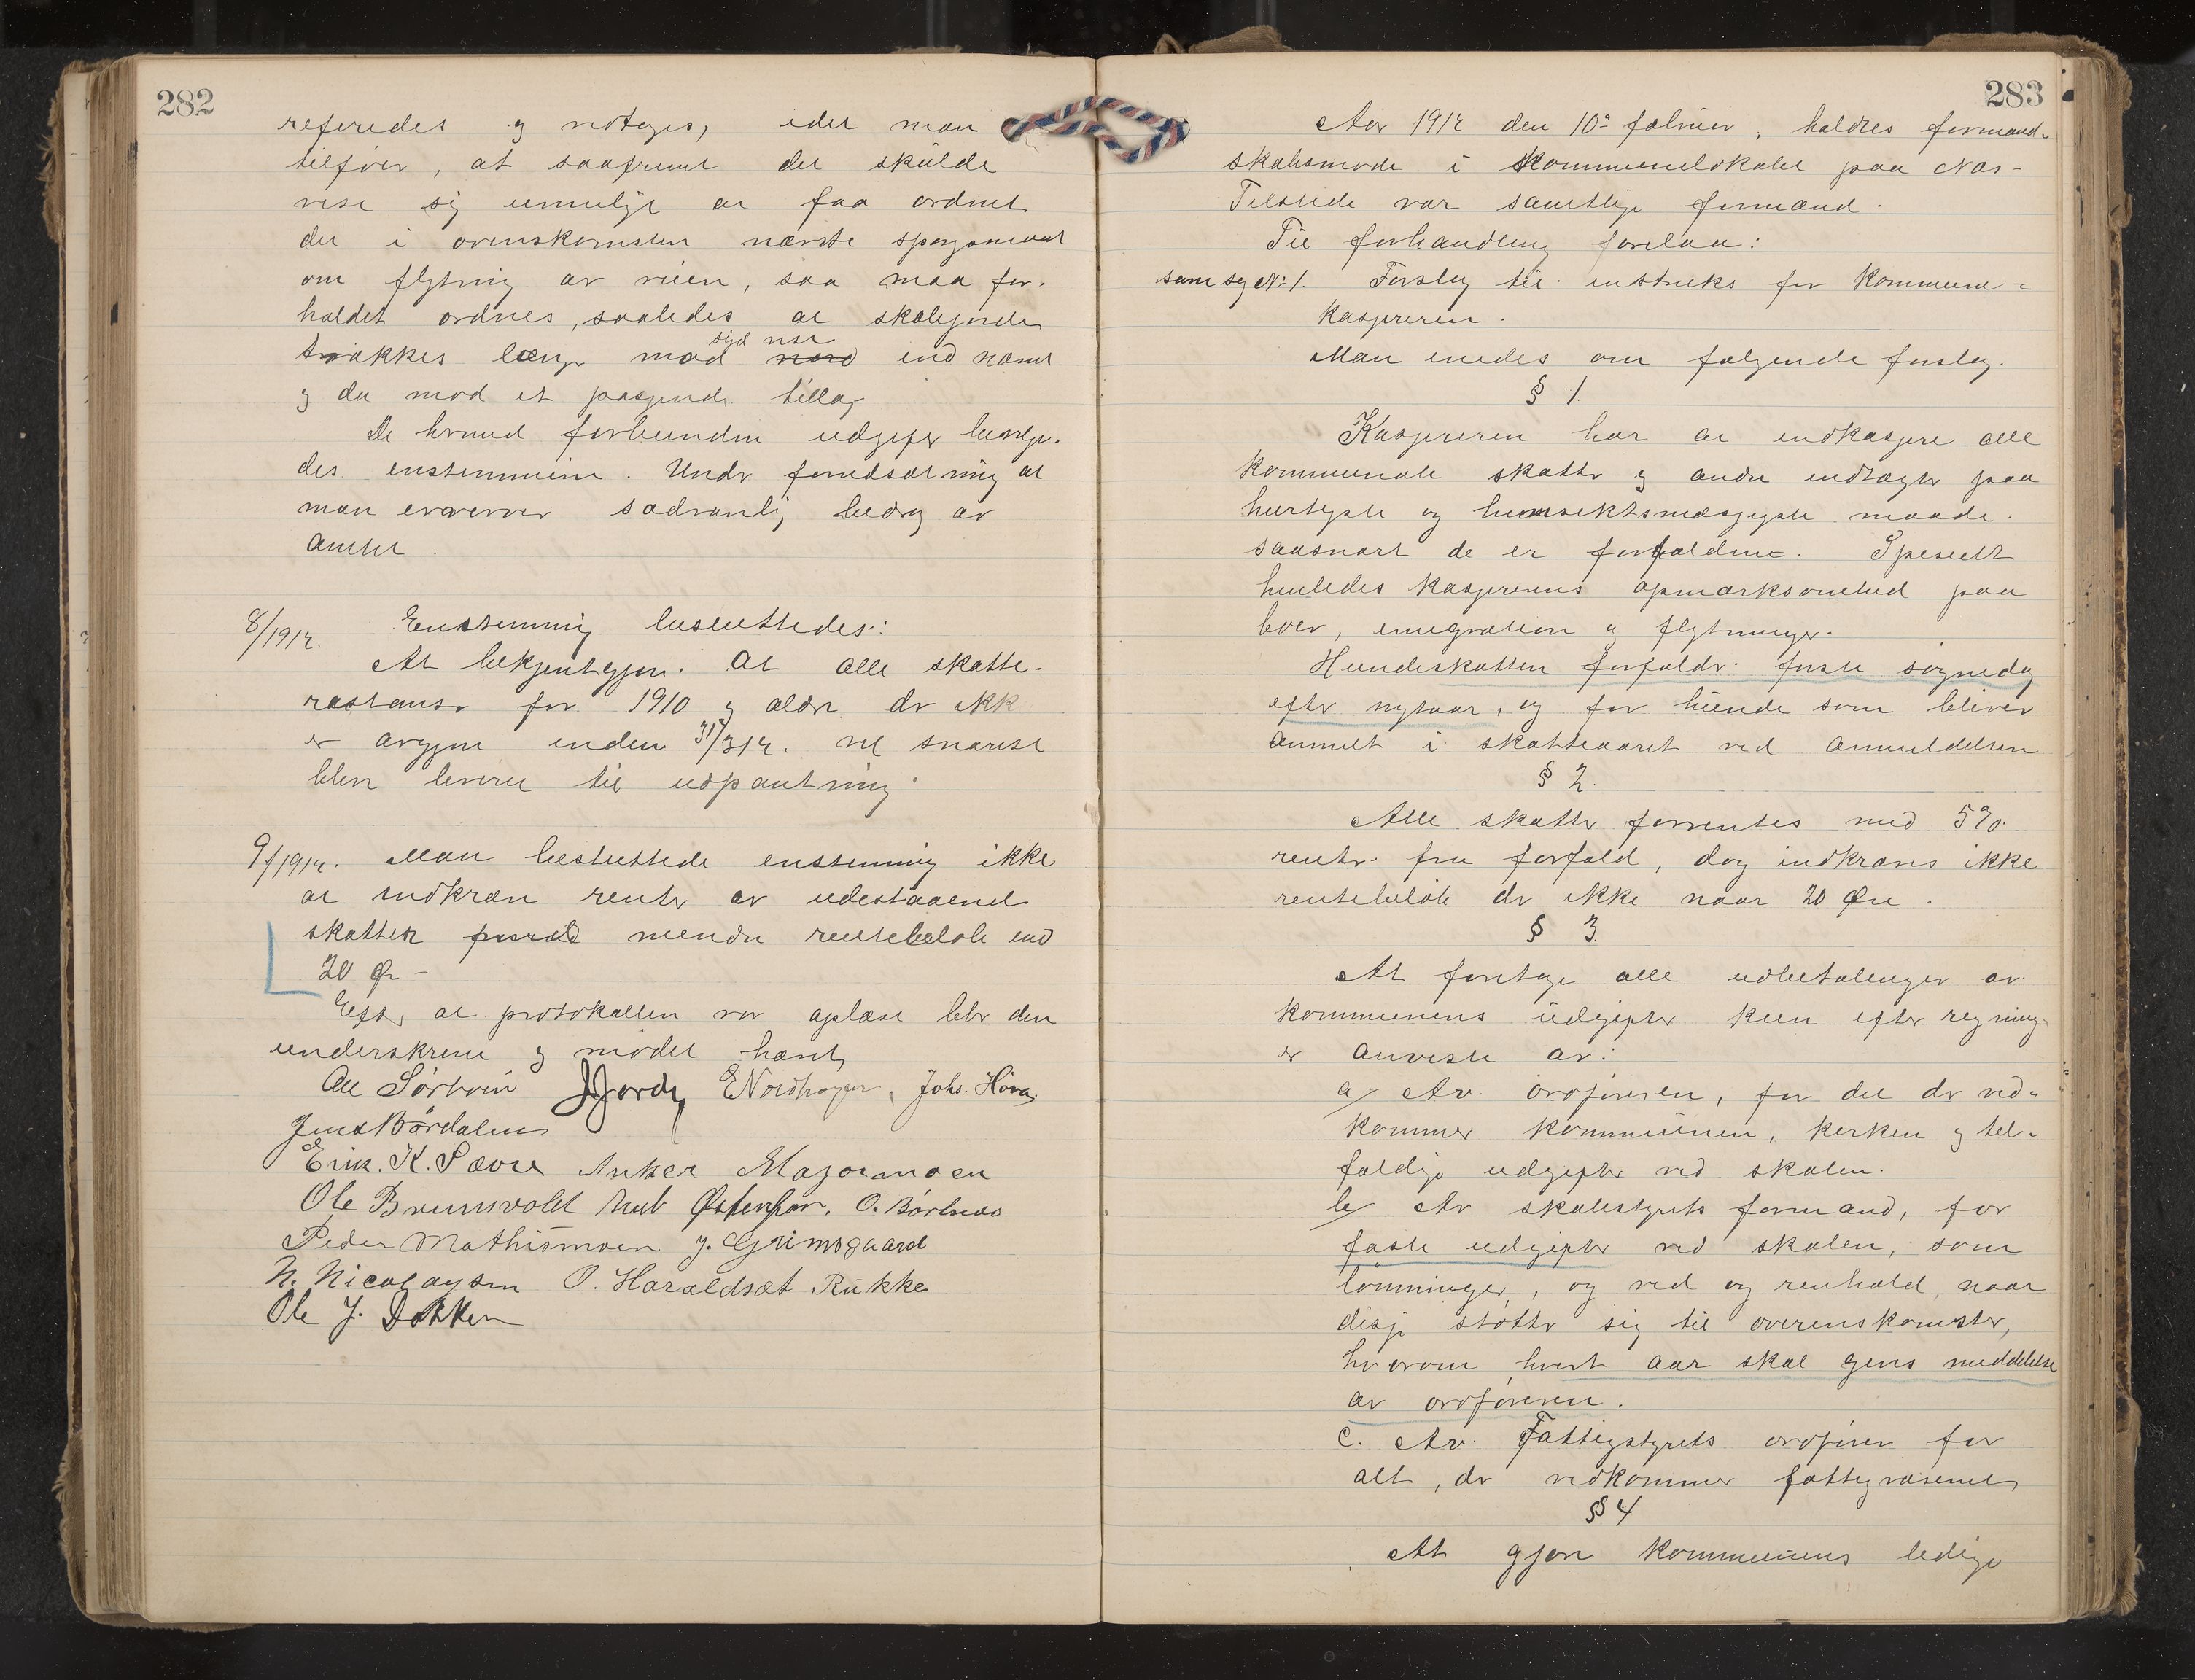 282
referedes og vedtages, idet man
tilføier, at saafremt det skulde
vise sig umulig at faa ordnet
det i overenskomsten nævnte spørgsmaal
om flytning av veien, saa maa for-
holdet ordnes, saaledes at skolejorden
syd vest
trækkes længe mod nord end nævnt
og da mod et passende tillæg
De hermed forbundne udgifter bevilge-
des enstemmig. Under forudsætning at
man erverver sædvanlig bidrag av
amtet.
8/1912. Enstemmig besluttedes:
At bekjentgjøre. At alle skatte-
restanser for 1910 og ældre der ikke
er avgjort inden 31/3 12. vil snarest
blive leveret til udpantning.
9/1912. Man besluttede enstemmig ikke
at indkræve renter av udestaaende
skatter mindre rentebeløb end
20 Øre -
Efter at protokollen var oplæst blev den
underskrevet og mødet hævet
Ole Sørbøen JJordе ENordhagen, Johs. Høva
Jens Børdalen
Erik. K. Sævre Anker Majormoen
Ole Brunsvold Østenfor. O. Børtnes
Peder Mathismoen J. Grimsgaard
N. Nicolaysen O. Haraldset Rukke
Ole J. Dokken
283
Aar 1912 den 10de februar, holdtes formand-
skabsmøde i kommunelokalet paa Næs-
Tilstede var samtlige formænd.
Til forhandling forelaa:
sam sag No 1. Forslag til instruks for kommune-
kasseren.
Man enedes om følgende forslag.
§ 1.
Kassereren har at indkassere alle
kommunale skatter og andre indtægter paa
hurtigste og hensiktsmæssigste maade.
saasnart de er forfaldne. Specielt
henledes kassererens opmærksomhed paa
boer, emigration og flytninger.
Hundeskatten forfalder første søgnedag
efter nytaar, og for hunde som bliver
anmelt i skatteaaret ved anmeldelsen
§ 2.
Alle skatter forrentes med 5%
rente fra forfald, dog indkræves ikke
rentebeløb der ikke naar 20 Øre.
§ 3.
At foretage alle udbetalinger av
kommunens udgifter kun efter regning
er anviste av:
a/ Av ordføreren, for det der ved-
kommer kommunen, kirken og til-
fældige udgifter ved skolen.
b/ Av skolestyrets formand, for
faste udgifter ved skolen, som
lønninger, og ved og renhold, naar
disse støtter sig til overenskomster,
hvorom hvert aar skal gives meddelelse
av ordføreren.
c. Av Fattigstyrets ordfører for
alt, der vedkommer fattigvæsenet
§ 4
At gjøre kommunens ledige